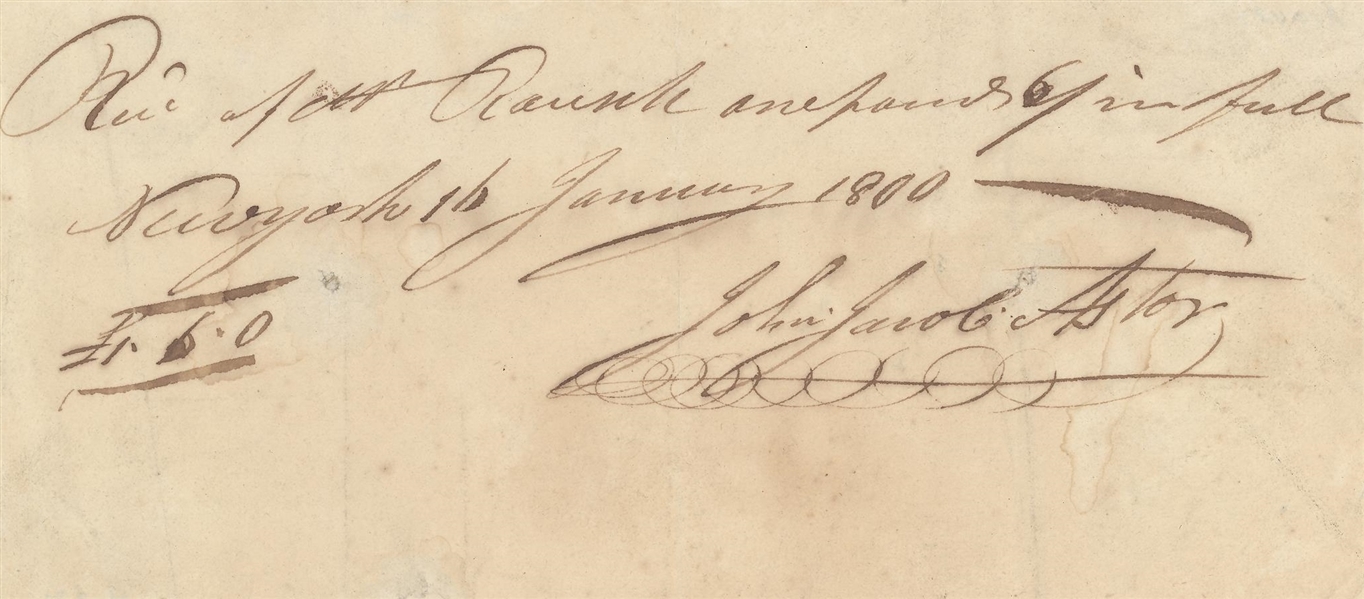 Recᵈ of Mr Rausch one pound 6/ in full
Newyork 16 January 1800
£1.6.0
John Jacob Astor